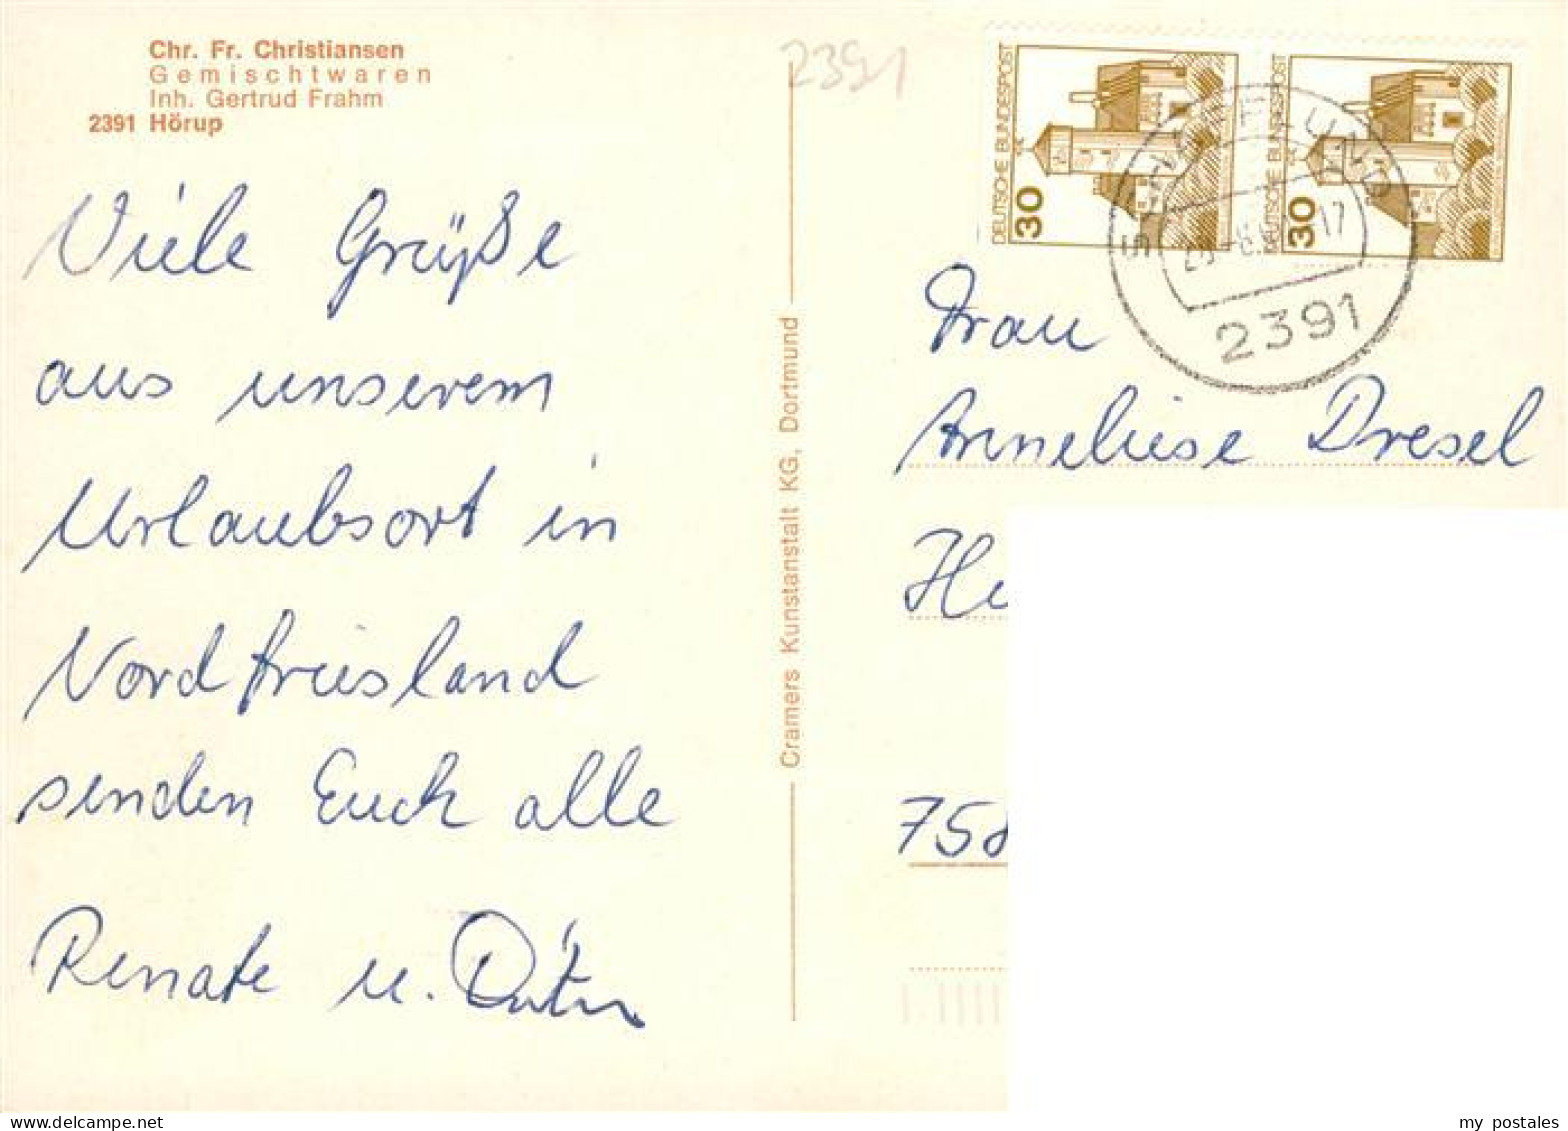 Chr. Fr. Christiansen
Gemischtwaren
Inh. Gertrud Frahm
2391 Hörup
Viele Grüße
aus unserem
Urlaubsort in
Nordfriesland
senden Euch alle
Renate u.
Cramers Kunstanstalt KG, Dortmund
2391
DEUTSCHE BUNDESPOST
30
DEUTSCHE BUNDESPOST
30
17
2391
Frau
Anneliese Dresel
He
758
my postales